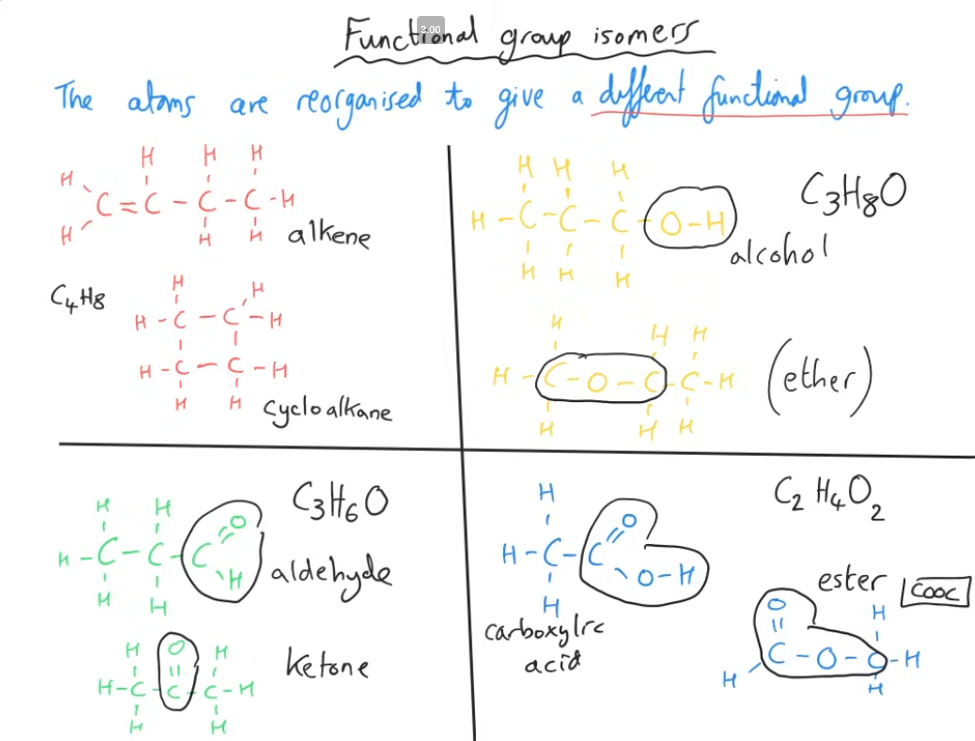 Functional group isomers
3.00
The atoms are reorganised to give a different functional group.
H H H H
C=C-C-C-H
H H H
alkene
C4H8
H H
H-C-C-H
H-C-C-H
H H
cycloalkane
H H H
H-C-C-C-O-H
H H H
C3H8O
alcohol
H H H
H-C-O-C-C-H
H H H
(ether)
C3H6O
H H O
H-C-C-C
H
H H
aldehyde
H O H
H-C-C-C-H
H H
ketone
C2H4O2
H O
H-C-C
O-H
H
carboxylic
acid
ester COOC
O H
C-O-C-H
H H